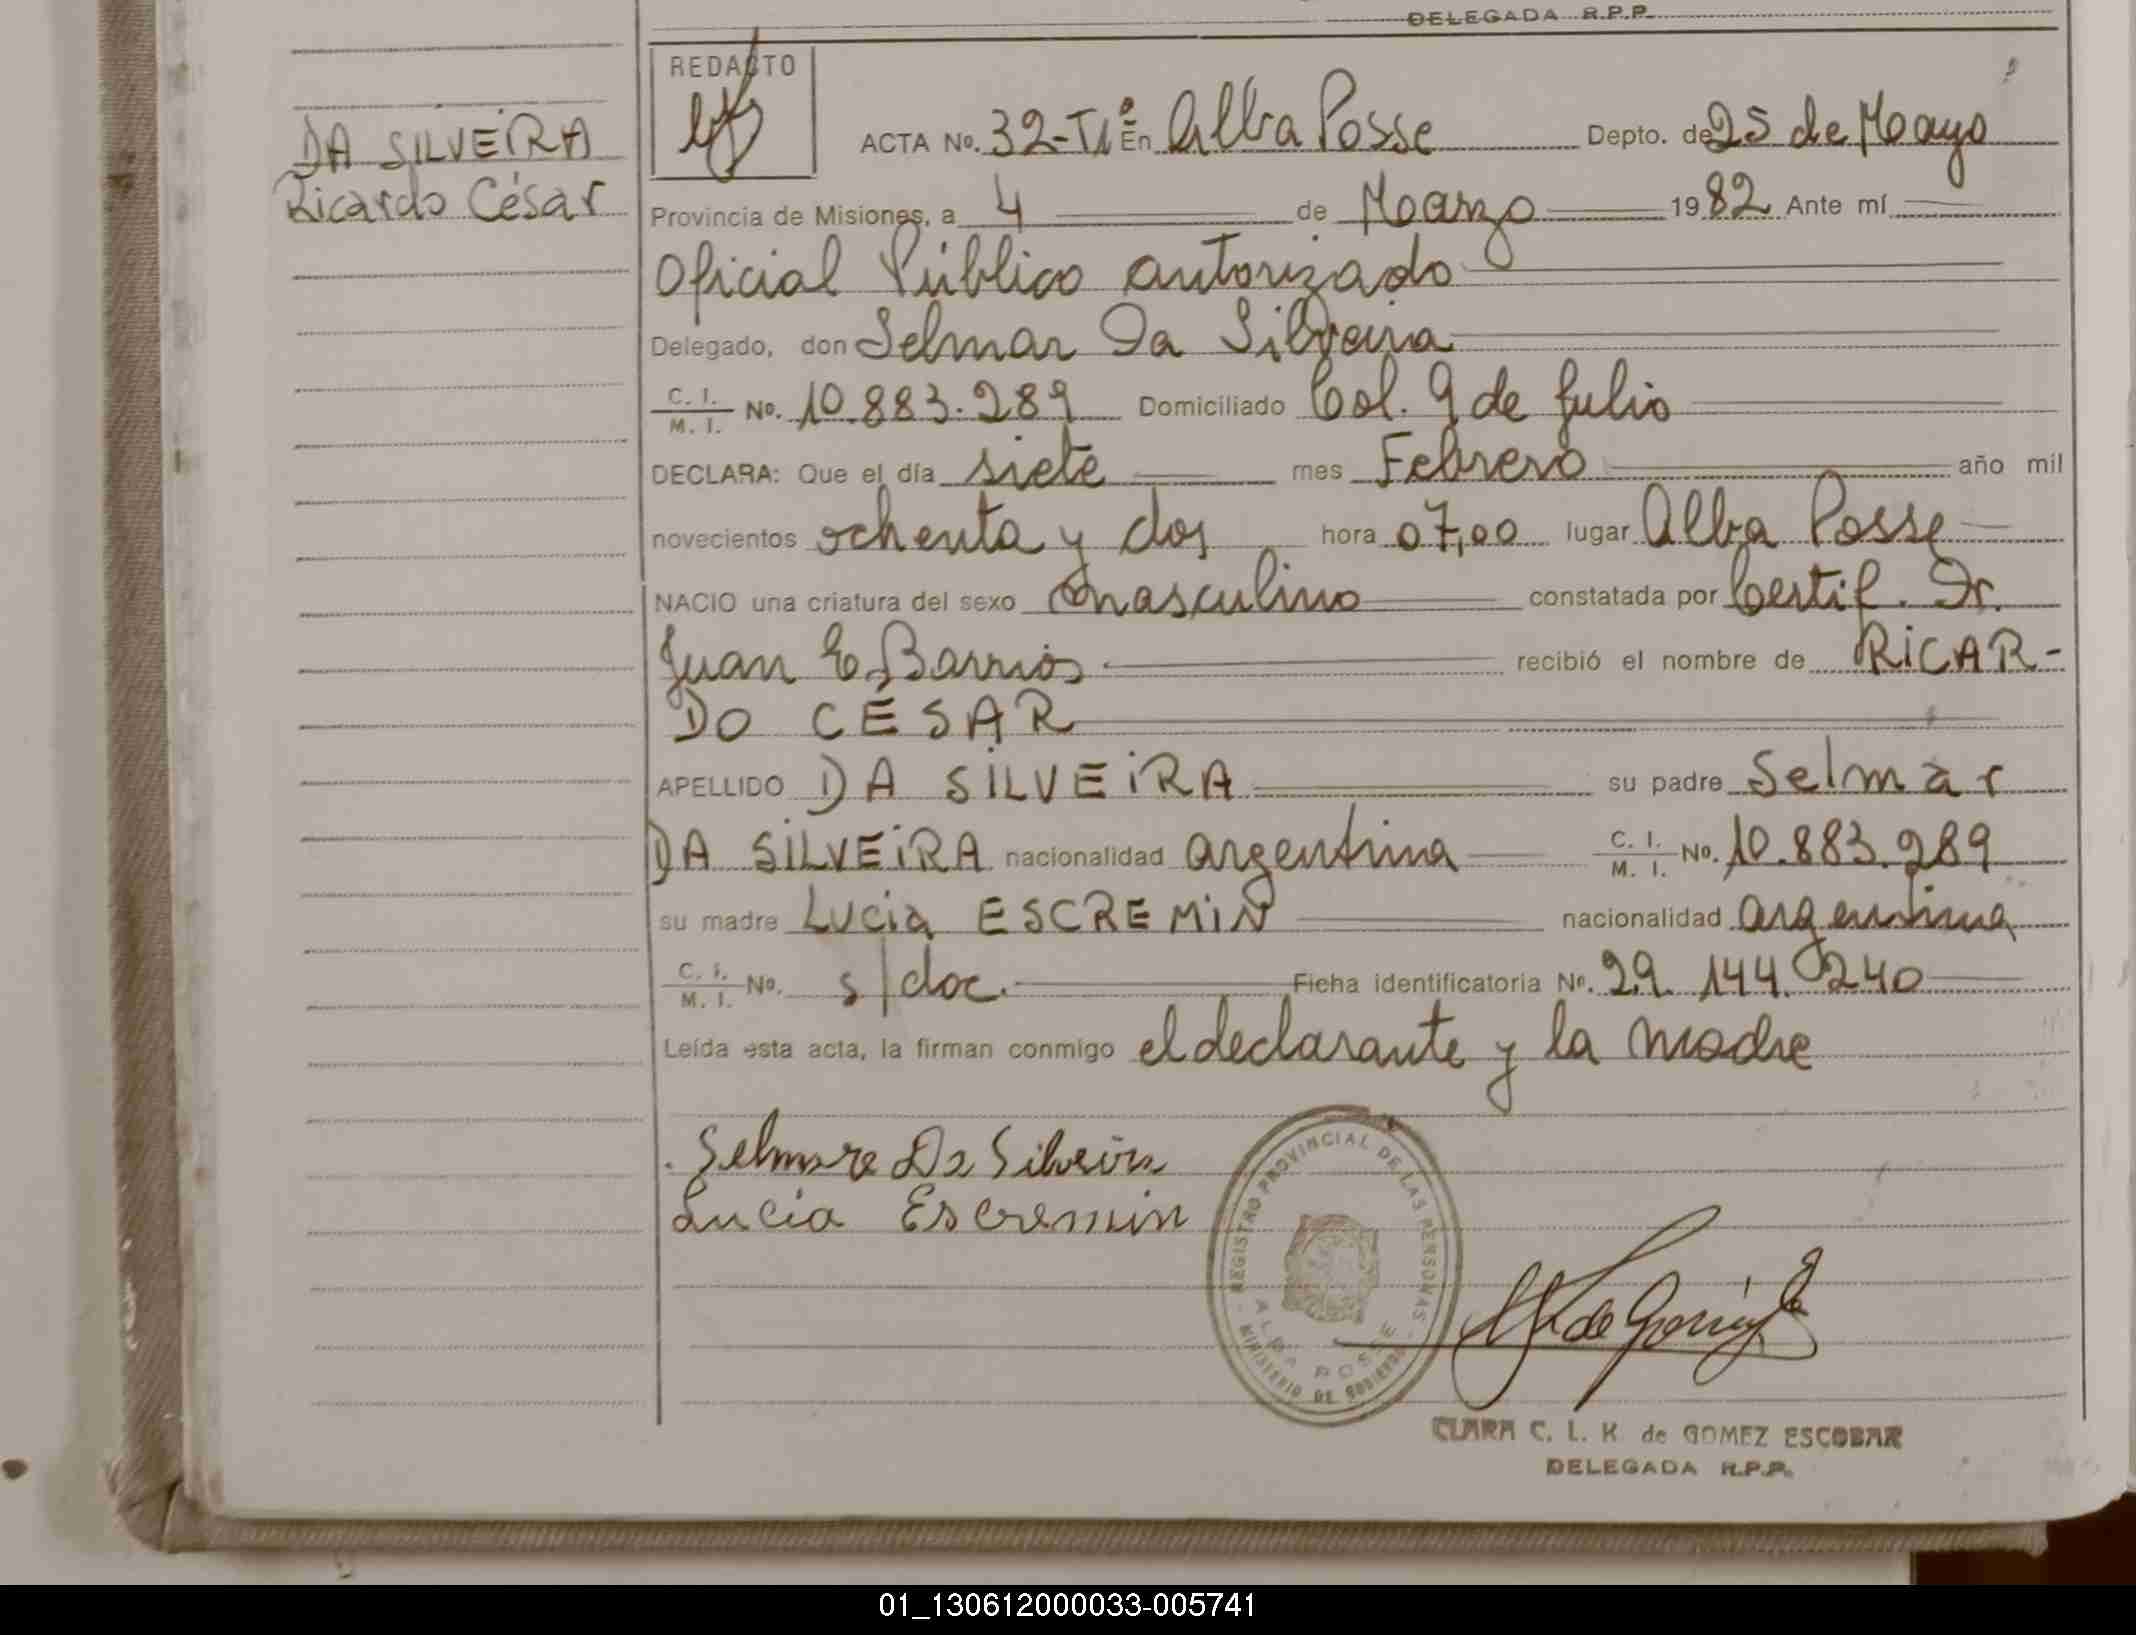 DELEGADA R.P.P.
REDACTO
DA SILVEIRA
Ricardo César
ACTA No. 32-T1º En Alba Posse Depto. de 25 de Mayo
Provincia de Misiones, a 4 de Marzo 1982 Ante mí
Oficial Público autorizado
Delegado, don Selmar Da Silveira
C. I. / M. I. No. 10.883.289 Domiciliado Col. 9 de Julio
DECLARA: Que el día siete mes Febrero año mil
novecientos ochenta y dos hora 07,00 lugar Alba Posse
NACIO una criatura del sexo masculino constatada por Certif. Dr.
Juan E. Barrios recibió el nombre de RICAR-
DO CÉSAR
APELLIDO DA SILVEIRA su padre Selmar
DA SILVEIRA nacionalidad argentina C. I. / M. I. No. 10.883.289
su madre Lucia ESCREMIN nacionalidad argentina
C. I. / M. I. No. s/doc. Ficha identificatoria No. 29.144.240
Leída esta acta, la firman conmigo el declarante y la madre
Selmare Da Silveira
Lucia Escremin
REGISTRO PROVINCIAL DE LAS PERSONAS
ALBA POSSE
MINISTERIO DE GOBIERNO
CLARA C. L. K de GOMEZ ESCOBAR
DELEGADA R.P.P.
01_130612000033-005741